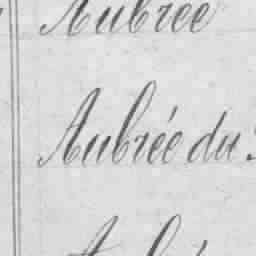 Aubrée
Aubrée du